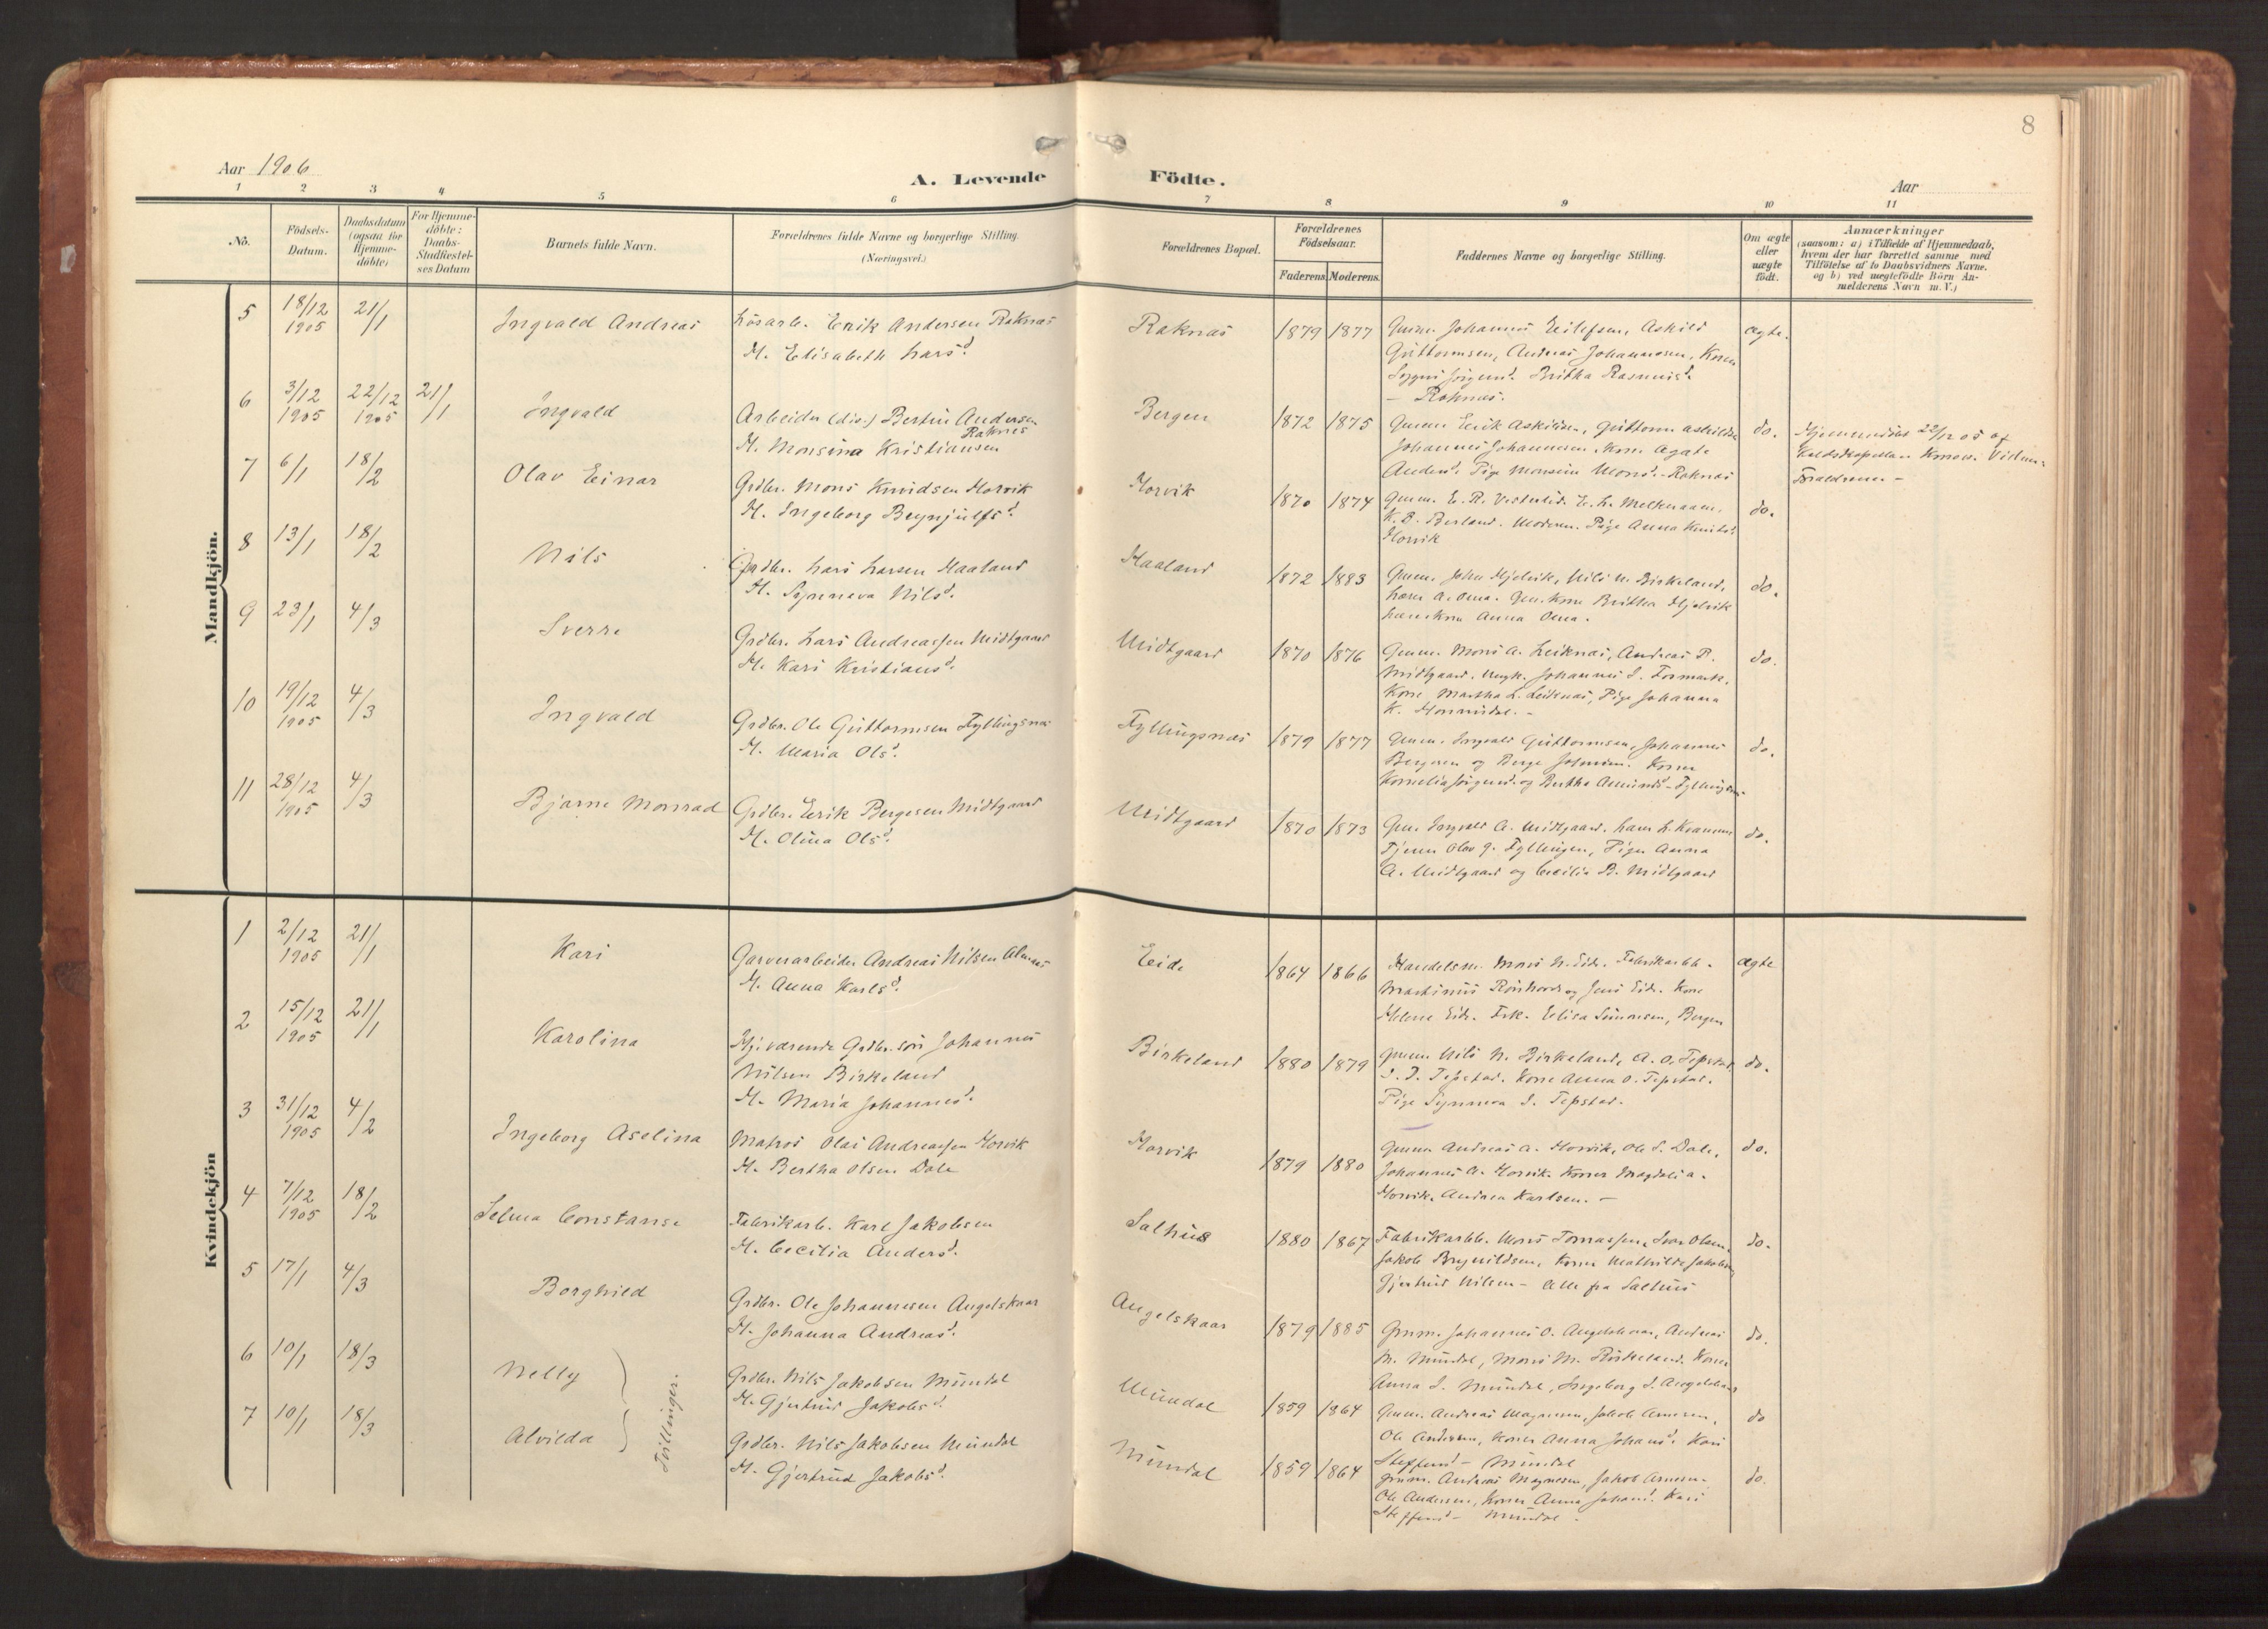 8
Aar 1906
A. Levende Födte.
Aar
1 2 3 4 5 6 7 8 9 10 11
No.
Födsels-
Datum.
Daabsdatum
(ogsaa for
Hjemme-
döbte)
For Hjemme-
döbte:
Daabs-
Stadfæstel-
ses Datum
Barnets fulde Navn.
Forældrenes fulde Navne og borgerlige Stilling.
(Næringsvei.)
Forældrenes Bopæl.
Forældrenes
Födselsaar.
Faderens. Moderens.
Faddernes Navne og borgerlige Stilling.
Om ægte
eller
uægte
födt.
Anmærkninger
(saasom: a) i Tilfælde af Hjemmedaab,
hvem der har forrettet samme med
Tilföielse af to Daabsvidners Navne.
og b) ved uægtefödte Börn An-
melderens Navn m. V.)
Mandkjön.
5 18/12 1905 21/1 Ingvald Andreas
Lösarb. Erik Andersen Raknæs
H. Elisabeth Larsd.
Raknæs 1879 1877
Gmm. Johannes Eilefsen, Askild
Guttormsen, Andreas Johannesen, Kone
Britha Rasmusd.
– Raknæs.
ægte.
6 3/12 1905 22/12 1905 21/1 Ingvald
Arbeider (div.) Bertin Andersen
Raknes
H. Monsina Kristiansen
Bergen 1872 1875
Gmm. Erik Askildsen, Guttorm Askildsen
Johannes Johannesen, Kone Agate
Andersd. Pige Monsine Monsd. – Raknæs
do.
Hjemmedöbt 22/12 05 af
Vidner:
Forældrene. –
7 6/1 18/2 Olav Einar
Grdbr. Mons Knudsen Horvik
H. Ingeborg Brynjulfsd.
Horvik 1870 1874
Gmm. E. R. Vesterlid. E. L. Melkeraaen.
K. B. Berland. Moderen. Pige Anna Knutsd.
Horvik
do.
8 13/1 18/2 Nils
Grdbr. Lars Larsen Haaland
H. Synneva Nilsd.
Haaland 1872 1883
Gmm. Johs Hjelvik, Nils N. Birkeland,
Britha Hjelvik
Anna
do.
9 23/1 4/3 Sverre
Grdbr. Lars Andreassen Midtgaard
H. Kari Kristiansd.
Midtgaard 1870 1876
Gmm. Mons A. Leiknæs, Andreas P.
Midtgaard, Ungk. Johannes I. Formark.
Kone Martha L. Leiknæs, Pige Johanna
K.
do.
10 19/12 1905 4/3 Ingvald
Grdbr. Ole Guttormsen Fyllingsnæs
H. Maria Olsd.
Fyllingsnæs 1879 1877
Gmm. Ingvald Guttormsen, Johannes
Bergesen og Berge Johnsen. Koner
Kornelia og Bertha Amundsd. – Fyllingsnæs.
do.
11 28/12 1905 4/3 Bjarne Monrad
Grdbr. Erik Bergesen Midtgaard
H. Olina Olsd.
Midtgaard 1870 1873
Gm. Ingvald A. Midtgaard. Hans L. Kvamme
Tjener Olav G. Fyllingen, Piger Anna
A. Midtgaard og Cecilie B. Midtgaard
do.
Kvindekjön
1 2/12 1905 21/1 Kari
Garverarbeider Andreas Nilsen Almaas
H. Anna Karlsd.
Eide 1864 1866
Handelsm. Mons N. Eide. Fabrikarbb.
Martinus og Jens Eide. Kone
Helene Eide. Frk. Elisa Simonsen, Bergen
ægte
2 15/12 1905 21/1 Karolina
Hj.værende Grdbr.sön Johannes
Nilsen Birkeland
H. Maria Johannesd.
Birkeland 1880 1879
Gmm. Nils N. Birkeland, A. O. Tepstad,
I. I. Tepstad. Kone Anna O. Tepstad.
Pige Synneva I. Tepstad.
do.
3 31/12 1905 4/2 Ingeborg Aselina
Matros Olai Andreassen Horvik
H. Bertha Olsen Dale
Horvik 1879 1880
Gmm. Andreas A. Horvik, Ole S. Dale,
Johannes A. Horvik. Koner Magdeli A.
Horvik. Andrea Karlsen. –
do.
4 7/12 1905 18/2 Selma Constanse
Fabrikarb. Karl Jakobsen
H. Cecilia Andersd.
Salhus 1880 1867
Fabrikarbb. Mons Tomassen, Ivar Olsen,
Jakob Brynildsen, Koner Mathilde Jakobsen,
Gjertrud Nilsen – alle fra Salhus
do.
5 17/1 4/3 Borghild
Grdbr. Ole Johannesen Angelskaar
H. Johanna Andreasd.
Angelskaar 1879 1885
Gmm. Johannes O. Angelskaar, Andreas
M. Mundal, Mons M. Birkeland. Koner
Anna I. Mundal, Ingeborg I. Angelskaar
do.
6 10/1 18/3 Nelly
Grdbr. Nils Jakobsen Mundal
H. Gjertrud Jakobsd.
Mundal 1859 1864
Gmm. Andreas Magnesen, Jakob Arnesen,
Ole Andersen, Koner Anna Johansd. Kari
Steffensd – Mundal
do
Tvillinger.
7 10/1 18/3 Alvilda
Grdbr. Nils Jakobsen Mundal
H. Gjertrud Jakobsd.
Mundal 1859 1864
Gmm. Andreas Magnesen, Jakob Arnesen.
Ole Andersen, Koner Anna Johansd. Kari
Steffensd – Mundal.
do.